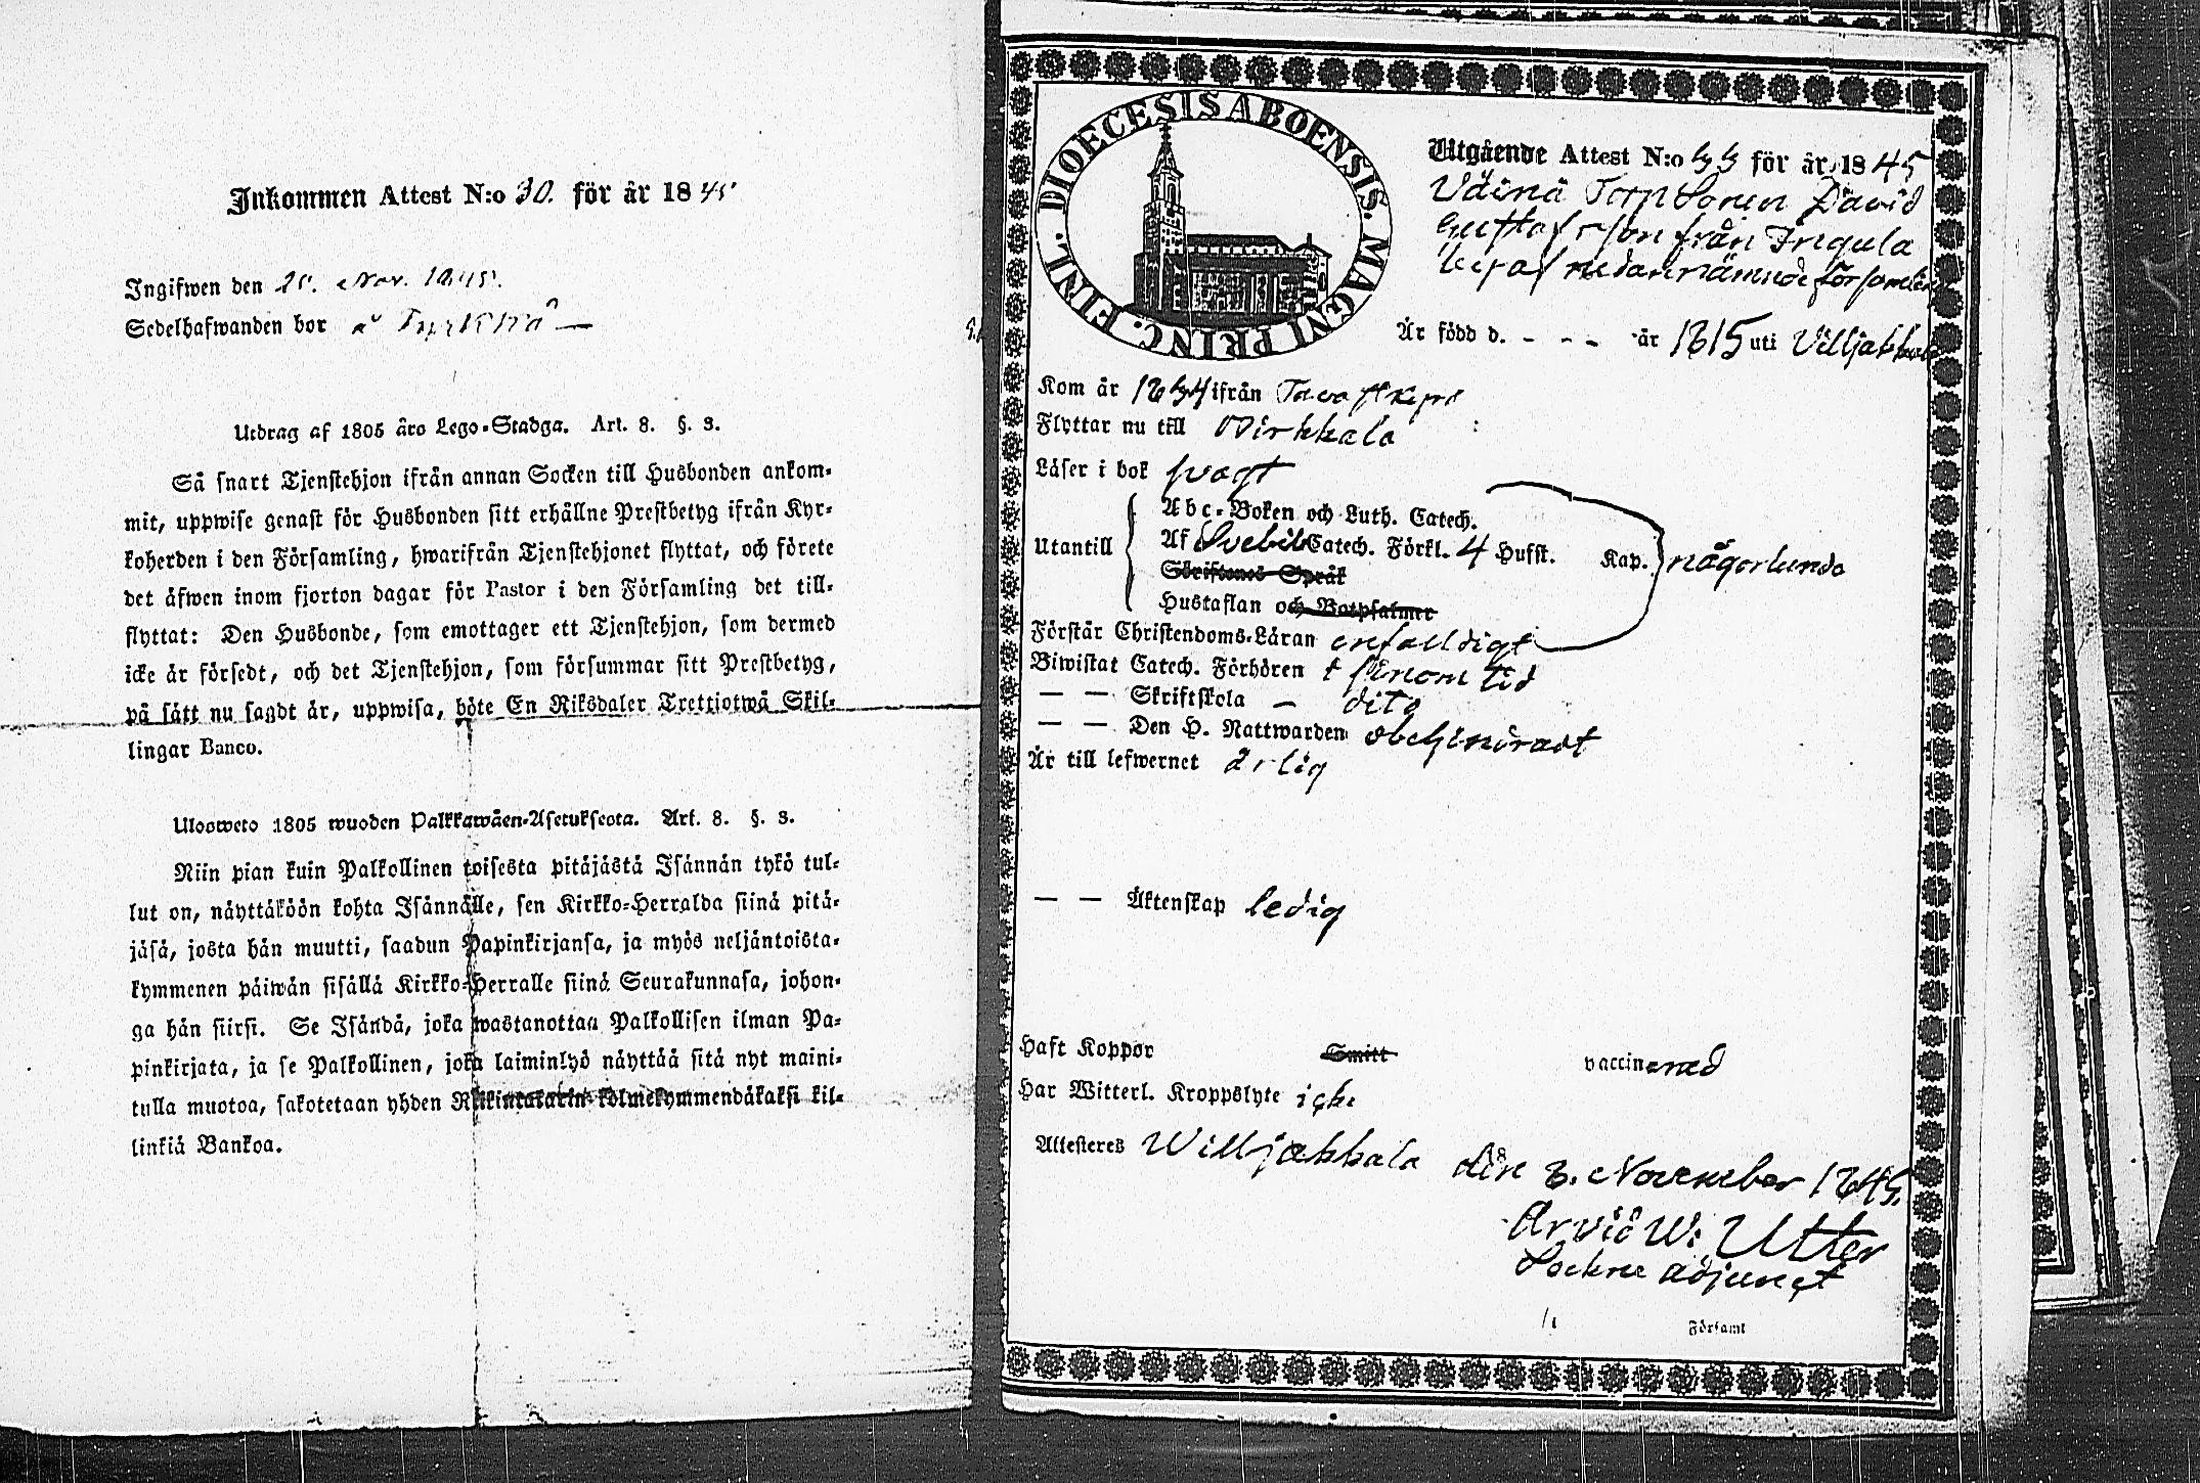 Inkommen Attest N:o 30. för år 1845
Ingifwen den 25. Nov. 1845.
Sedelhafwanden bor å Pyrkkö
Utdrag af 1805 års Lego-Stadga. Art. 8. §. 3.
Så snart Tjenstehjon ifrån annan Socken till Husbonden ankom-
mit, uppwise genast för Husbonden sitt erhållne Prestbetyg ifrån Kyr-
koherden i den Församling, hwarifrån Tjenstehjonet flyttat, och förete
det äfwen inom fjorton dagar för Pastor i den Församling det till-
flyttat: Den Husbonde, som emottager ett Tjenstehjon, som dermed
icke är försedt, och det Tjenstehjon, som försummar sitt Prestbetyg,
på sätt nu sagdt är, uppwisa, böte En Riksdaler Trettiotwå Skil-
lingar Banco.
Ulosweto 1805 wuoden Palkkawäen-Asetuksesta. Art. 8. §. 3.
Niin pian kuin Palkollinen toisesta pitäjästä Isännän tykö tul-
lut on, näyttäköön kohta Isännälle, sen Kirkko-Herralda siinä pitä-
jäsä, josta hän muutti, saadun Papinkirjansa, ja myös neljäntoista-
kymmenen päiwän sisällä Kirkko-Herralle siinä Seurakunnasa, johon-
ga hän siirsi. Se Isändä, joka wastanottaa Palkollisen ilman Pa-
pinkirjata, ja se Palkollinen, joka laiminlyö näyttää sitä nyt maini-
tulla muotoa, sakotetaan yhden Riikintalarin kolmekymmendäkaksi kil-
linkiä Bankoa.
DIOECESIS ABOENSIS. MAGNI PRINC. FINL.
Utgående Attest N:o 44 för år 1845
Torp Sonen David
Gustafsson från Inqula
by af nedannämnde Församling
Är född d. - - - år 1815 uti Villjakkala
Kom år 1844 ifrån Tavastkyro
Flyttar nu till Birkkala
Läser i bok svagt
Utantill
Abc-Boken och Luth. Catech.
Af Svebil Catech. Förkl. 4 Hufst. Kap. någorlunda
Skriftenes Språk
Hustaflan och Botpsalmer
Förstår Christendoms-Läran enfalldigt
Biwistat Catech. Förhören i sinom tid
— — Skriftskola — dito
— — Den H. Nattwarden obehindradt
Är till lefwernet ärlig
— — Äktenskap ledig
Haft Koppor Smitt vaccinerad
Har Witterl. Kroppslyte icke
Attesteres Willjakkala den 3. November 1845.
Arvid W. Utter
Sockne adjunct
Församl